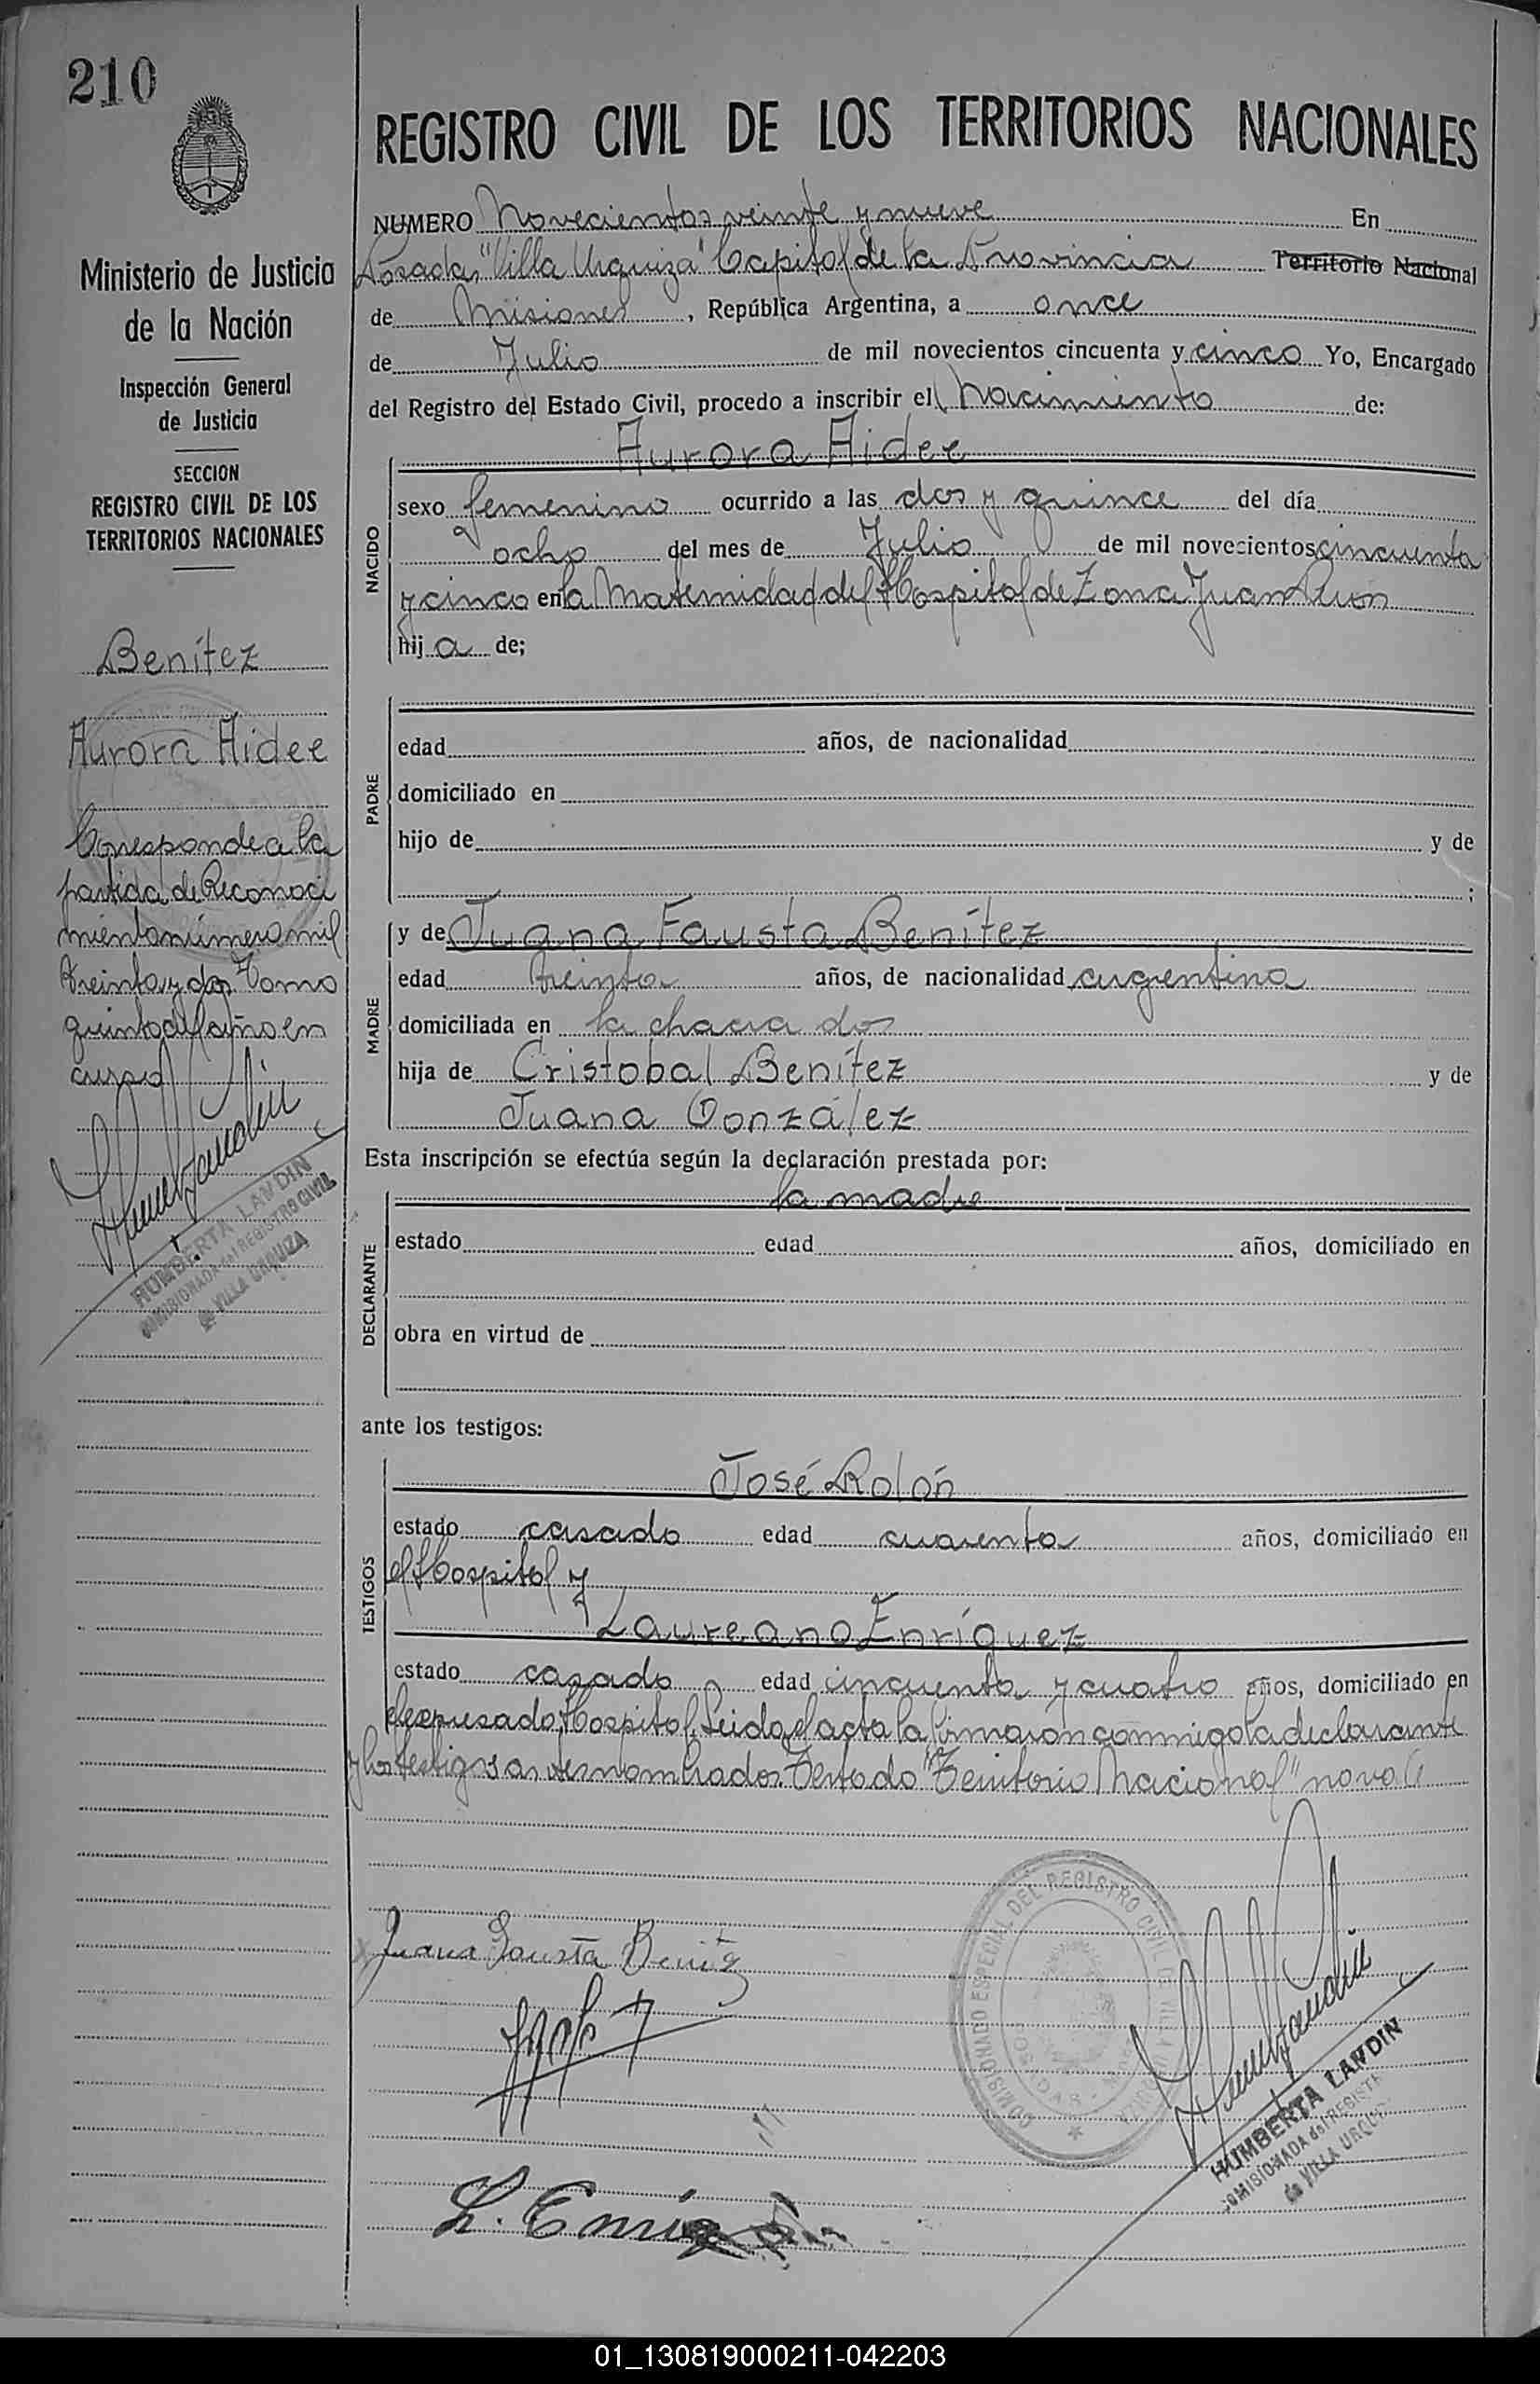 210
Ministerio de Justicia
de la Nación
Inspección General
de Justicia
SECCION
REGISTRO CIVIL DE LOS
TERRITORIOS NACIONALES
Benítez
Aurora Aidee
Corresponde a la
partida de Reconoci
miento número mil
treinta y dos Tomo
quinto del año en
curso
HUMBERTA LANDIN
COMISIONADA del REGISTRO CIVIL
de VILLA URQUIZA
REGISTRO CIVIL DE LOS TERRITORIOS NACIONALES
NUMERO Novecientos veinte y nueve En
Posadas, "Villa Urquiza" Capital de la Provincia Territorio Nacional
de Misiones, República Argentina, a once
de Julio de mil novecientos cincuenta y cinco Yo, Encargado
del Registro del Estado Civil, procedo a inscribir el Nacimiento de:
Aurora Aidee
NACIDO
sexo femenino ocurrido a las dos y quince del día
ocho del mes de Julio de mil novecientos cincuenta
y cinco en la Maternidad del Hospital de Zona Juan Perón
hij a de;
PADRE
edad años, de nacionalidad
domiciliado en
hijo de y de
;
MADRE
y de Juana Fausta Benítez
edad treinta años, de nacionalidad argentina
domiciliada en la chacra dos
hija de Cristobal Benítez y de
Juana González
Esta inscripción se efectúa según la declaración prestada por:
la madre
DECLARANTE
estado edad años, domiciliado en
obra en virtud de
ante los testigos:
TESTIGOS
José Rolón
estado casado edad cuarenta años, domiciliado en
el Hospital y
Laureano Enríquez
estado casado edad cincuenta y cuatro años, domiciliado en
el expresado Hospital. Leida el acta la firmaron conmigo la declarante
y los testigos antes nombrados. Testado "Territorio Nacional" no vale
Juana Fausta Benitez
L. Enriq
COMISIONADO ESPECIAL DEL REGISTRO CIVIL DE VILLA URQUIZA
POSADAS
HUMBERTA LANDIN
COMISIONADA del REGISTR
de VILLA URQUI
01_130819000211-042203